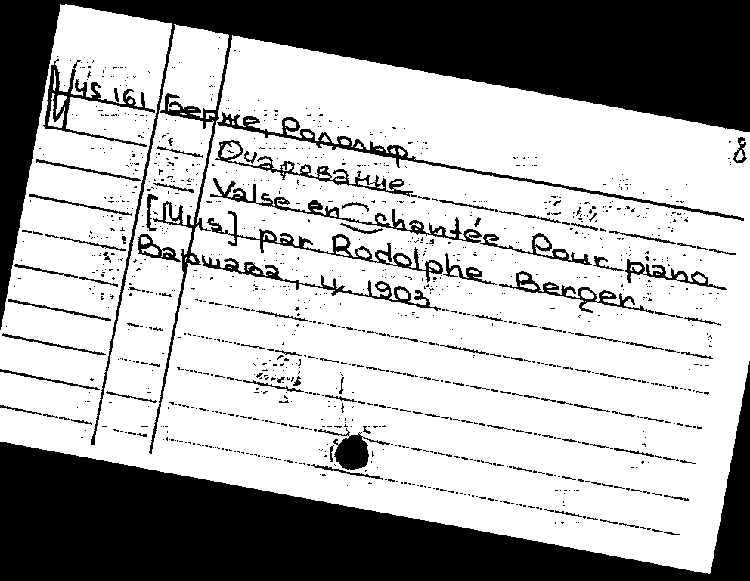 45 161 Берже, Родольф. 8
Очарование
Valse en chantée. Pour piano
[Mus] par Rodolphe Berger.
Варшава, ц. 1903.